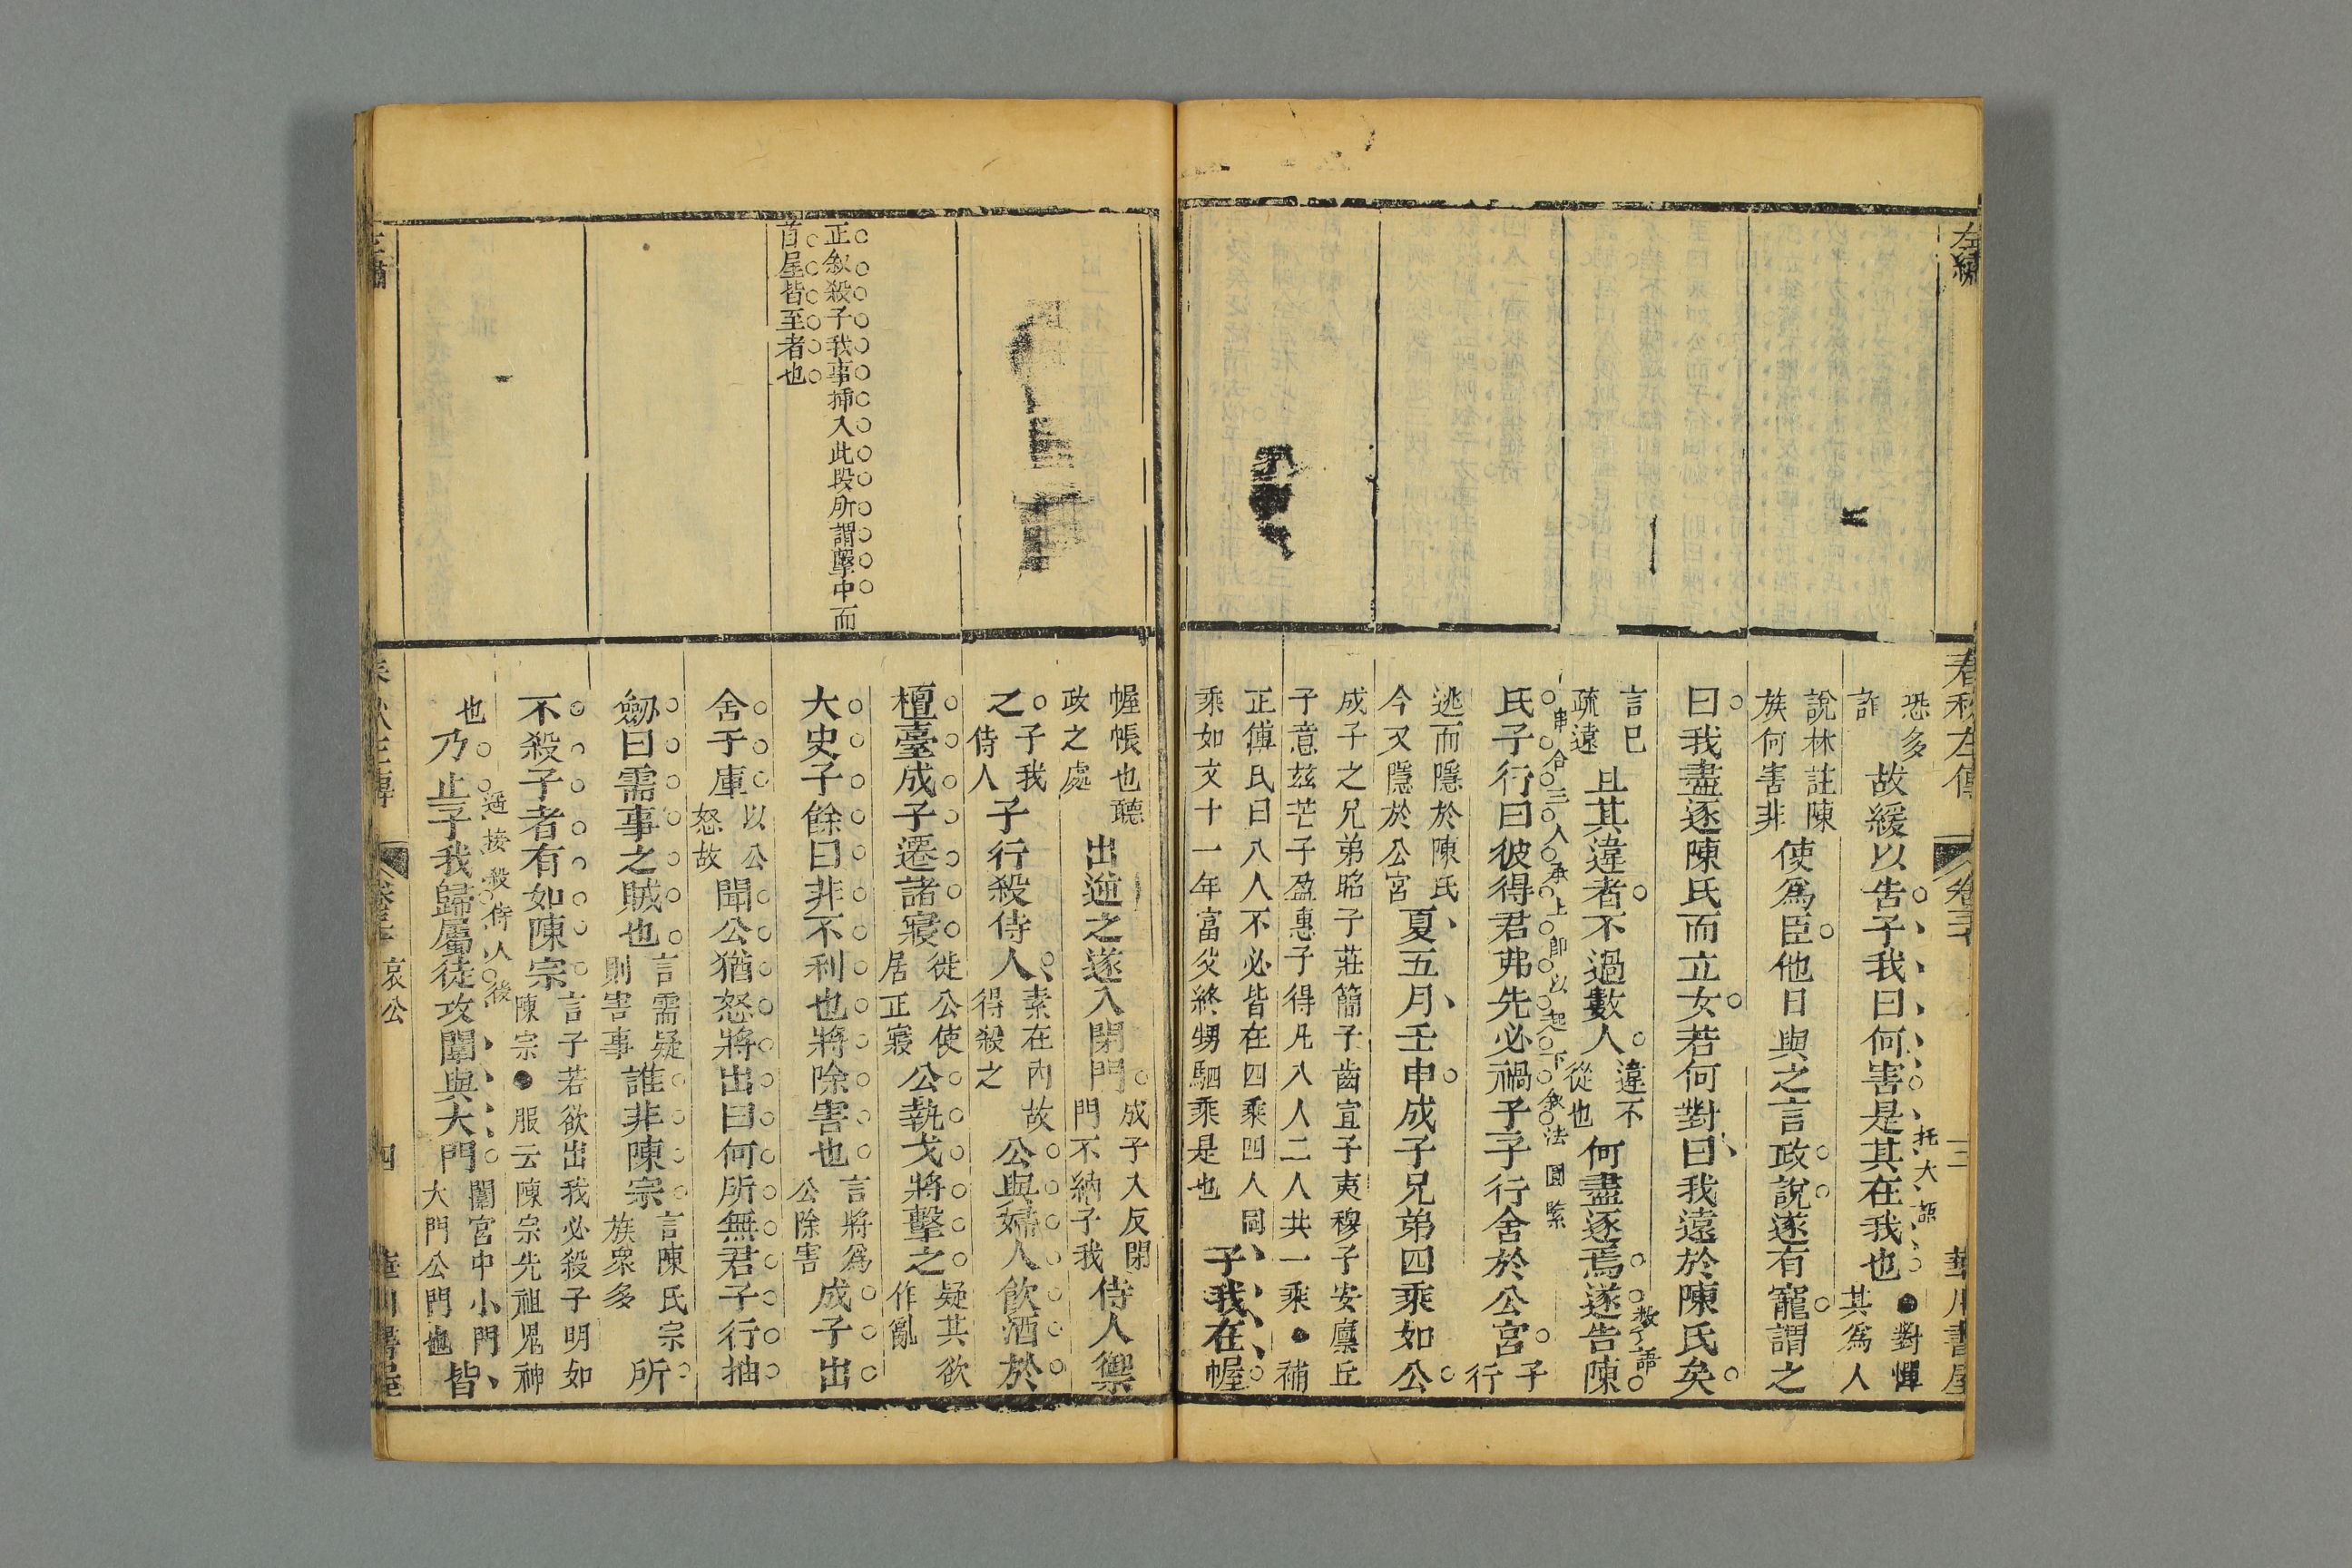 左繡
春秋左傳
卷三十
三
華川書屋
恐多詐故緩以告子我曰何害是其在我也●對憚其為人
托大語
說林註陳族何害非使為臣他日與之言政說遂有寵謂之
曰我盡逐陳氏而立女若何對曰我遠於陳氏矣
言巳疏遠且其違者不過數人違不從也何盡逐焉遂告陳
敖了語
氏子行曰彼得君弗先必禍子子行舍於公宮子行
串合三人承上即以起下叙法圓緊
逃而隱於陳氏今又隱於公宮夏五月壬申成子兄弟四乘如公
成子之兄弟昭子莊簡子齒宣子夷穆子安廪丘子意玆芒子盈惠子得凡八人二人共一乘●補
正傅氏曰八人不必皆在四乘四人同乘如文十一年富父終甥駟乘是也子我在幄
幄帳也聽政之處出逆之遂入閉門成子入反閉門不納子我侍人禦
之子我侍人子行殺侍人素在內故得殺之公與婦人飲酒於
檀臺成子遷諸寢徙公使居正寢公執戈將擊之疑其欲作亂
正叙殺子我事挿入此段所謂擊中而
首尾皆至者也
大史子餘曰非不利也將除害也言將為公除害成子出
舍于庫以公怒故聞公猶怒將出曰何所無君子行抽
劒曰需事之賊也言需疑則害事誰非陳宗言陳氏宗族衆多所
不殺子者有如陳宗言子若欲出我必殺子明如陳宗●服云陳宗先祖鬼神
也乃止子我歸屬徒攻闈與大門闈宮中小門大門公門也皆
遥接殺侍人後
春秋左傳
哀公
四
華川書屋